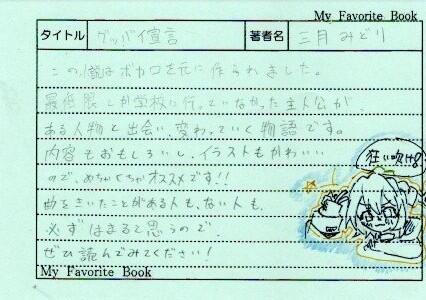 My Favorite Book
タイトル グッバイ宣言 著者名 三月みどり
この小説はボカロを元に作られました。
最低限しか学校に行っていなかった主人公が、
ある人物と出会い、変わっていく物語です。
内容もおもしろいし、イラストもかわいい
ので、めちゃくちゃオススメです!!
狂い咲け!
曲をきいたことがある人も、ない人も、
必ずはまると思うので
ぜひ読んでみてください!
My Favorite Book